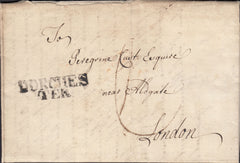 To
Peregrine Esquire
DORCHES
TER
near Aldgate
London